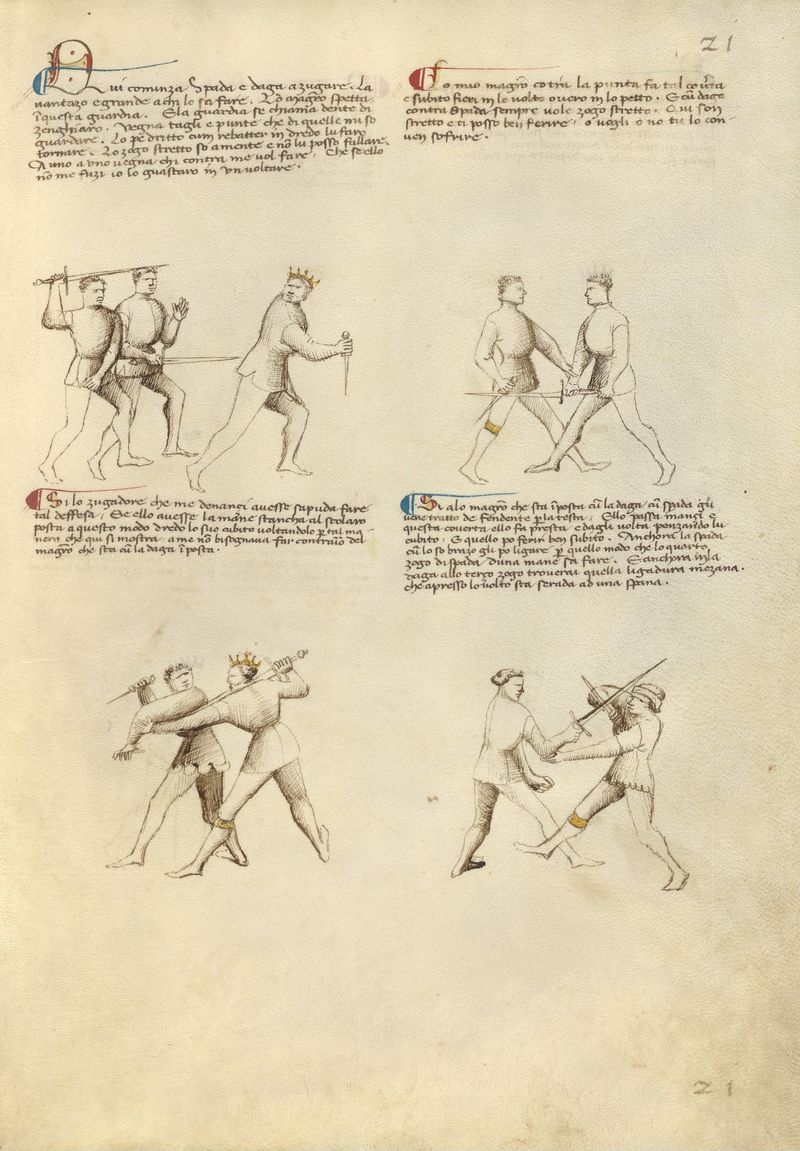 21
Qui cominza Spada e daga a zugare. La
vantazo e grande a chi lo sa fare. Lo Magistro spetta
in questa guardia. E la guardia se chiama dente di
zenghiaro. Vegna tagli e punte che di quelle mi so
guardare. Lo pe dritto cum rebatter in dredo lu faro
tornare. Lo zogo stretto so a mente e non lu posso fallare.
A uno a uno vegna chi contra me vol fare. Che se ello
non me fuzi io lo guastaro in un voltare.
Lo mio magistro contra la punta fa tal coverta
e subito fieri in lo volto overo in lo petto. E cum daga
contra Spada sempre vole zogo stretto. Qui son
stretto e ti posso ben ferire, o vogli o no tu lo con-
ven sofrire.
Si lo zugadore che me denanci avesse sapuda fare
tal deffesa, Se ello avesse la mane stancha al scolaro
posta a questo modo dredo lo suo cubito voltandolo per tal ma-
nera che qui si mostra, a me non bisognava far contrario del
magistro che sta cum la daga in posta.
Si alo magistro che sta in posta cum la daga cum spada gli
vene tratto de fendente per la testa, Ello passa inanci e
questa coverta ello fa presta e dagli volta penzando lu
cubito, E quello po ferir ben subito. Anchora la spada
cum lo so brazo gli po ligare per quello modo che lo quarto
zogo di spada d'una mane sa fare. E anchora in la
daga allo terzo zogo troverai quella ligadura mezana.
che apresso lo volto sta serada ad una spana.
21